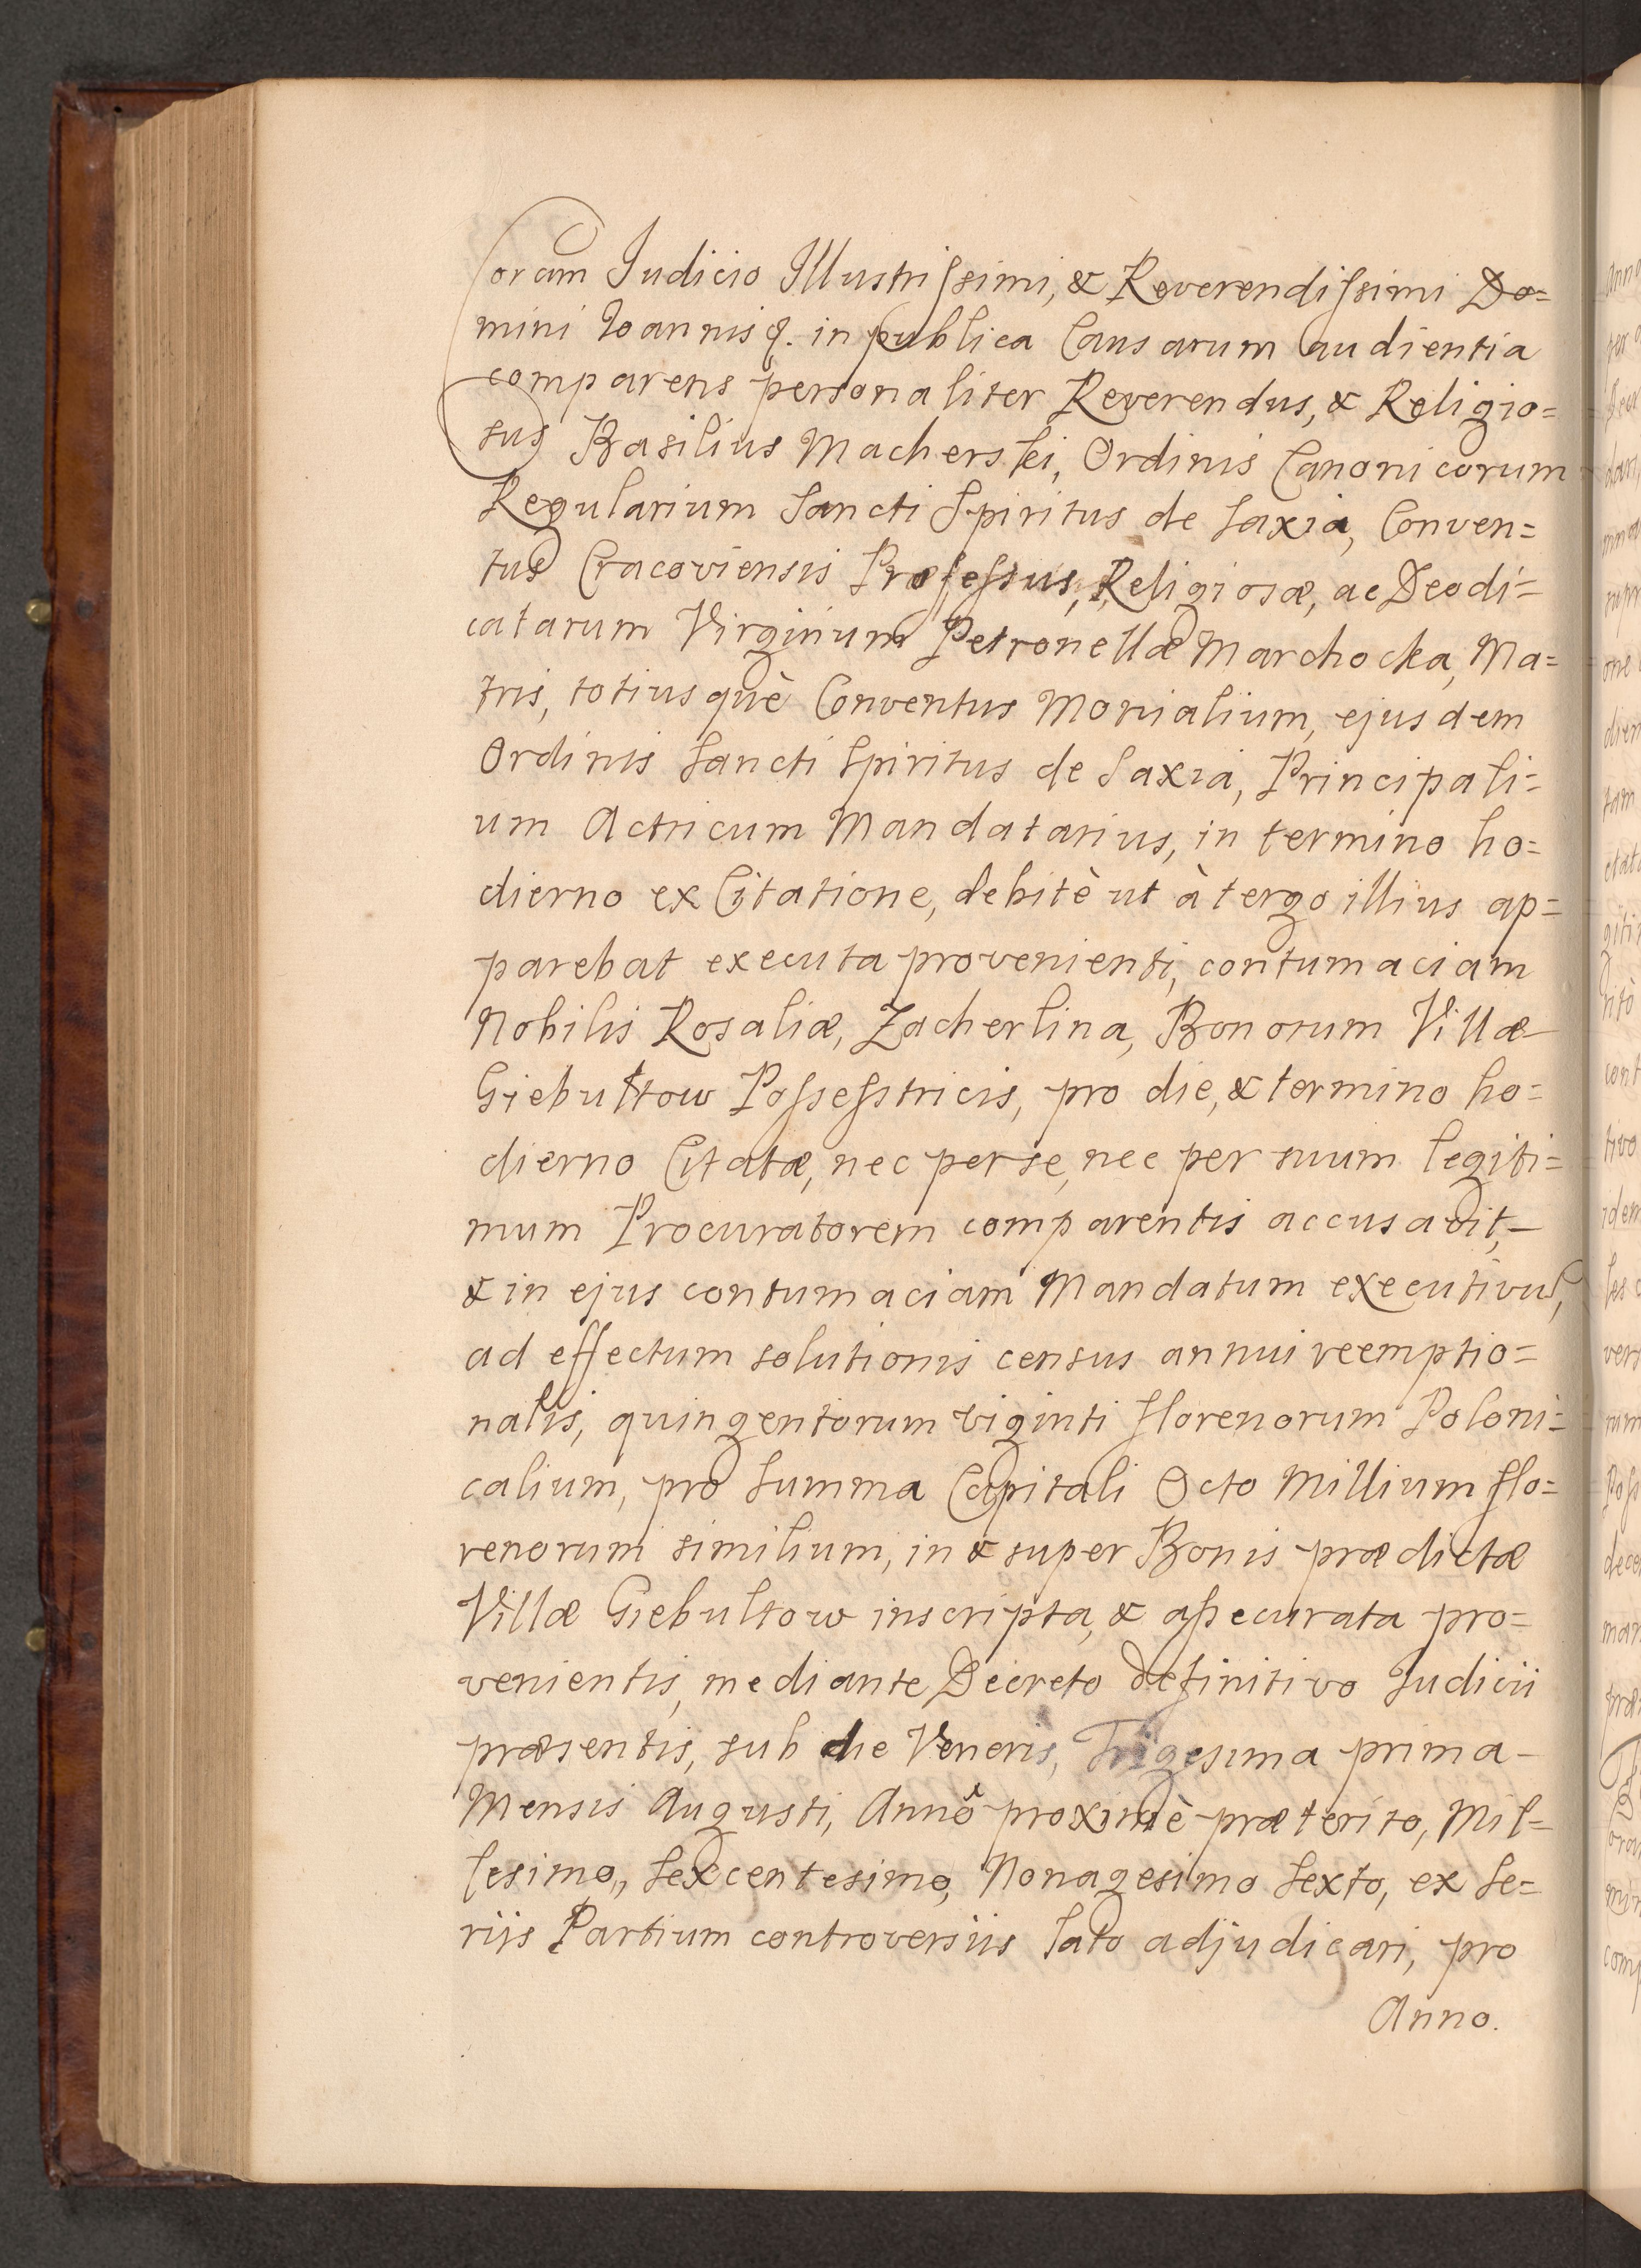 Coram Iudicio Illustrissimi, & Reverendissimi Do=
mini Ioannis &. in publica Causarum audientia
comparens personaliter Reverendus, & Religio=
sus Basilius Macherski, Ordinis Canonicorum
Regularium Sancti Spiritus de Saxia, Conven=
tus Cracoviensis Professus, Religiosæ, ac Deodi=
catarum Virginum Petronellæ Marchocka, Ma=
tris, totiusquè Conventus Monialium, ejusdem
Ordinis Sancti Spiritus de Saxia, Principali=
um Actricum Mandatarius, in termino ho=
dierno ex Citatione, debitè ut à tergo illius ap=
parebat executa provenienti, contumaciam
Nobilis Rosaliæ, Zacherlina, Bonorum Villæ
Giebułtow Possesstricis, pro die, & termino ho=
dierno Citatæ, nec per se, nec per suum legiti=
mum Procuratorem comparentis accusavit,
& in ejus contumaciam Mandatum executivu,
ad effectum solutionis census annui reemptio=
nalis, quingentorum viginti florenorum Poloni=
calium, pro Summa Capitali Octo Millium flo=
renorum similium, in & super Bonis prædictæ
Villæ Giebultow inscripta, & assecurata pro=
venientis, mediante Decreto definitivo Iudicii
præsentis, sub die Veneris, Trigesima prima
Mensis Augusti, Annô proximè præterito, Mil=
lesimo, Sexcentesimo, Nonagesimo Sexto, ex se=
riis Partium controversiis lato adjudicari, pro
Anno.